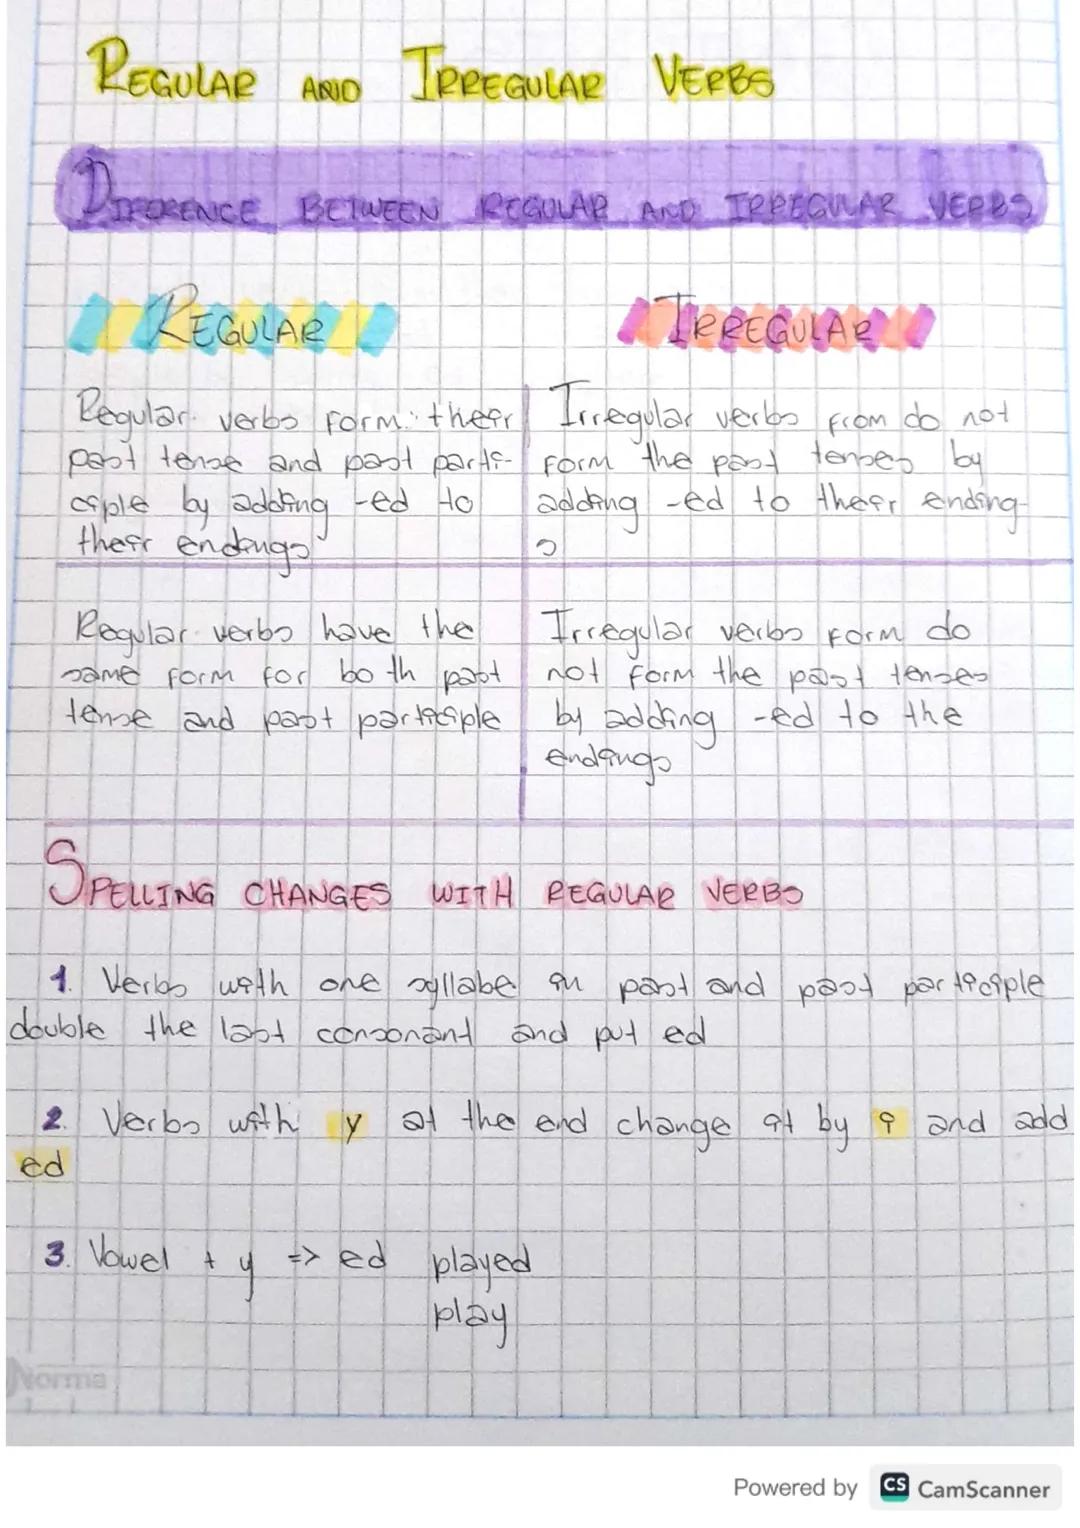 REGULAR AND IRREGULAR VERBS
DIFERENCE BETWEEN REGULAR AND IRREGULAR VERBS
REGULAR
Regular verbs form their
past tense and past parti-
ciple by adding -ed to
their endings
Regular verbs have the
same form for both past
tense and past participle
IRREGULAR
Irregular verbs from do not
form the past tenses by
adding -ed to their ending-
s
Irregular verbs form do
not form the past tenses
by adding -ed to the
endings
SPELLING CHANGES WITH REGULAR VERBS
1. Verbs with one syllabe in past and past participle
double the last consonant and put ed
2. Verbs with y at the end change it by i and add
ed
3. Vowel + y => ed played
play
Norma
Powered by CS CamScanner